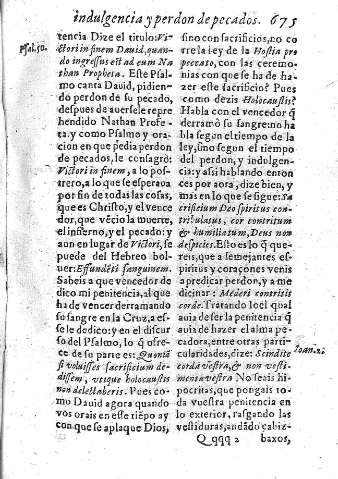 indulgencia y perdon de pecados. 675
Psal. 50.
tencia Dize el titulo: Vi-
ctori in finem Dauid, quan-
do ingressus est ad eum Na
than Propheta. Este Psal
mo canta Dauid, pidien-
do perdon de su pecado,
despues de auerse le repre
hendido Nathan Profe-
ta, y como Psalmo y ora-
cion en que pedia perdon
de pecados, le consagrò:
Victori in finem, a lo pos-
trero, a lo que se esperaua
por fin de todas las cosas,
que es Christo, y el vence
dor, que vẽcio la muerte,
el infierno, y el pecado: y
aun en lugar de Victori, se
puede del Hebreo bol-
uer: Effundẽti sanguinem.
Sabeis a que vencedor de
dico mi penitencia, al que
ha de vencer derramando
su sangre en la Cruz, a es-
se le dedico: y en el discur
so del Psalmo, lo q̃ ofre-
ce de su parte es: Quoniã
si voluisses sacrificium de-
dissem, vtique holocaustis
non delectaberis. Pues co-
mo Dauid agora quando
vos orais en este tiẽpo ay
con que se aplaque Dios,
sino con sacrificios, no co
rre la ley de la Hostia pro
peccato, con las ceremo-
nias con que se ha de ha-
zer este sacrificio? Pues
como dezis Holocaustis?
Habla con el vencedor q̃
derramô su sangre: no ha
bla segun el tiempo de la
ley, sino segun el tiempo
del perdon, y indulgen-
cia: y assi hablando enton
ces por aora, dize bien, y
mas en lo que se sigue: Sa
crificium Deo spiritus con
tribulatus, cor contritum
& humiliatum, Deus non
despicies. Esto es lo q̃ que-
reis, que a semejantes es-
piritus y coraçones venis
a predicar perdon, y a me
dicinar: Mederi contritis
corde. Tratando Ioel qual
auia de ser la penitencia q̃
auia de hazer el alma pe-
cadora, entre otras parti-
cularidades, dize: Scindite
Ioan. 2.
corda vestra, & non vesti-
menta vestra No seais hi-
pocritas, que pongais to
da vuestra penitencia en
lo exterior, rasgando las
vestiduras, andãdo cabiz-
Qqqq 2 baxos,